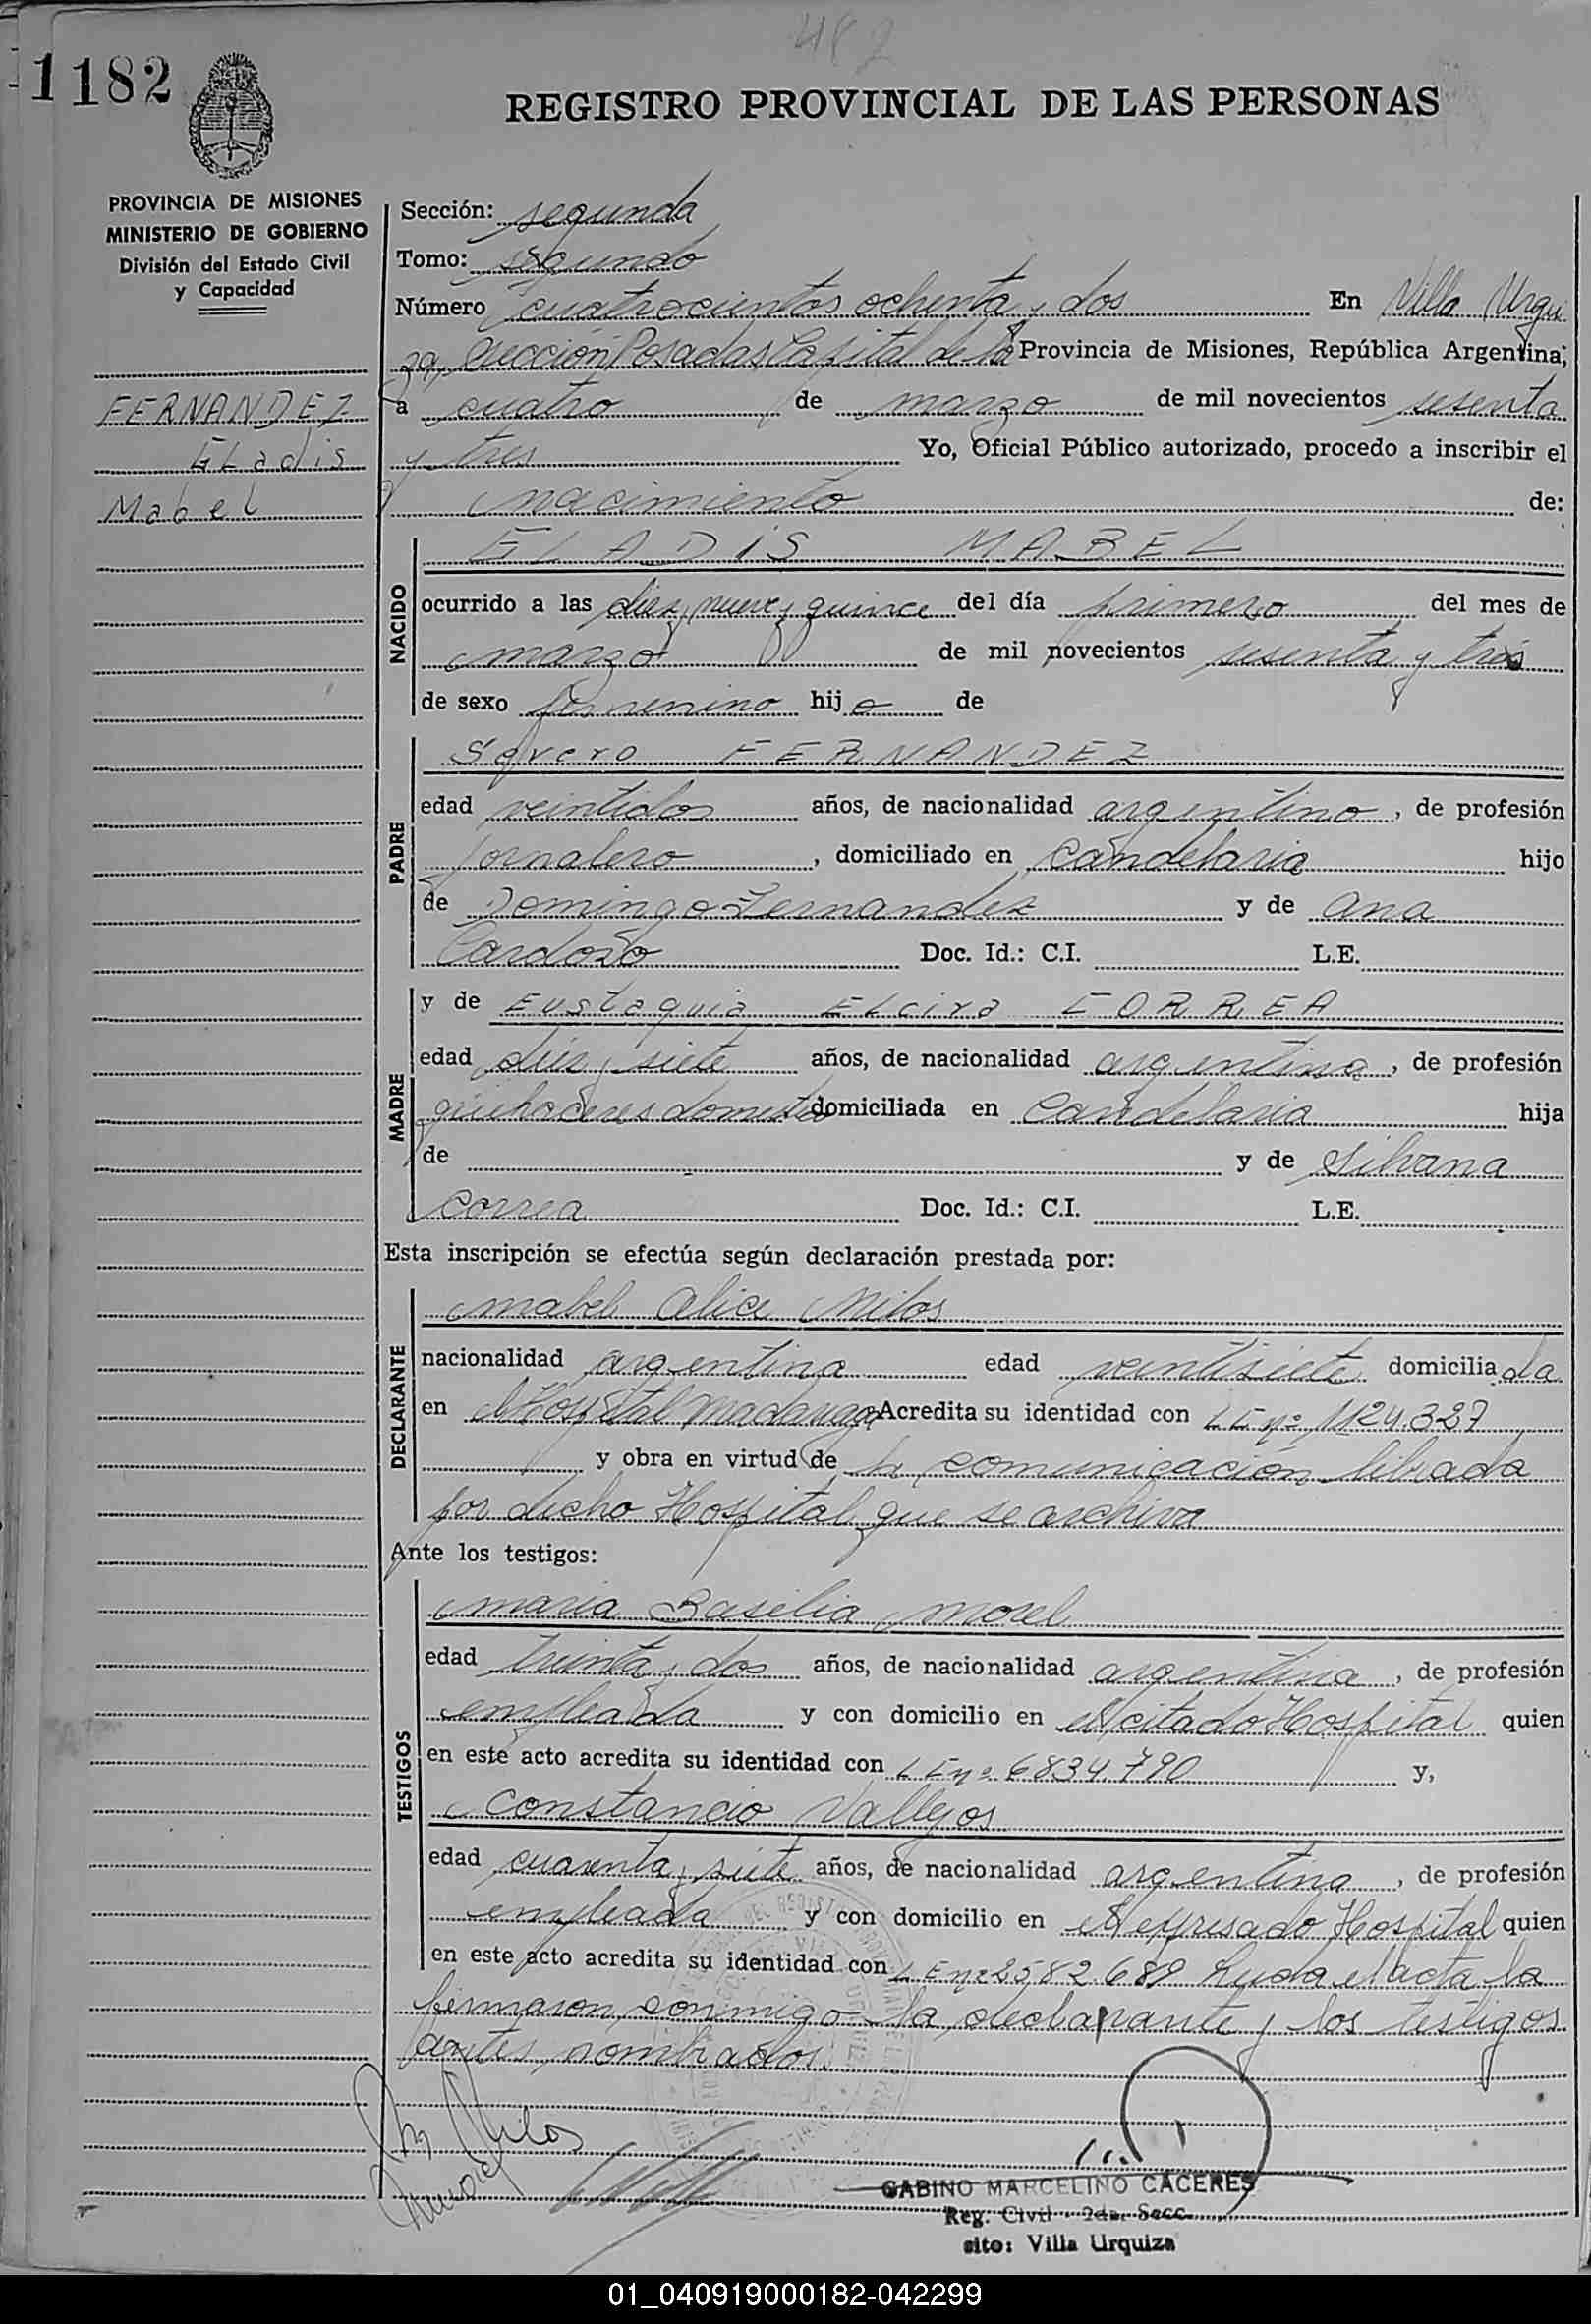 482
1182
REGISTRO PROVINCIAL DE LAS PERSONAS
PROVINCIA DE MISIONES
MINISTERIO DE GOBIERNO
División del Estado Civil
y Capacidad
FERNANDEZ
GLadis
Mabel
Sección: segunda
Tomo: segundo
Número cuatrocientos ochenta y dos En Villa Urqui
za, Sección Posadas Capital de la Provincia de Misiones, República Argentina;
a cuatro de marzo de mil novecientos sesenta
y tres Yo, Oficial Público autorizado, procedo a inscribir el
nacimiento de:
NACIDO
GLADIS MABEL
ocurrido a las diez y nueve y quince del día primero del mes de
marzo de mil novecientos sesenta y tres
de sexo femenino hija de
PADRE
Severo FERNANDEZ
edad veintidos años, de nacionalidad argentino, de profesión
jornalero, domiciliado en Candelaria hijo
de Domingo Fernandez y de Ana
Cardozo Doc. Id.: C.I. L.E.
MADRE
y de Eustaquia ELcira CORREA
edad diez y siete años, de nacionalidad argentina, de profesión
quehaceres domestico domiciliada en Candelaria hija
de y de Silvana
Correa Doc. Id.: C.I. L.E.
Esta inscripción se efectúa según declaración prestada por:
DECLARANTE
Mabel Alice Milos
nacionalidad argentina edad veintisiete domiciliada
en el Hospital Madariaga Acredita su identidad con L E nº 1124.327
y obra en virtud de la comunicación librada
por dicho Hospital que se archiva
Ante los testigos:
TESTIGOS
Maria Basilia Morel
edad treinta y dos años, de nacionalidad argentina, de profesión
empleada y con domicilio en el citado Hospital quien
en este acto acredita su identidad con L E nº 6834.790 y,
Constancio Vallejos
edad cuarenta y siete años, de nacionalidad argentina, de profesión
empleada y con domicilio en el expresado Hospital quien
en este acto acredita su identidad con L E nº 2582.689 Leyda el acta la
firmaron conmigo la declarante y los testigos
antes nombrados.
M Milos
Morel
GABINO MARCELINO CACERES
Reg. Civil - 2da. Secc.
sito: Villa Urquiza
01_040919000182-042299